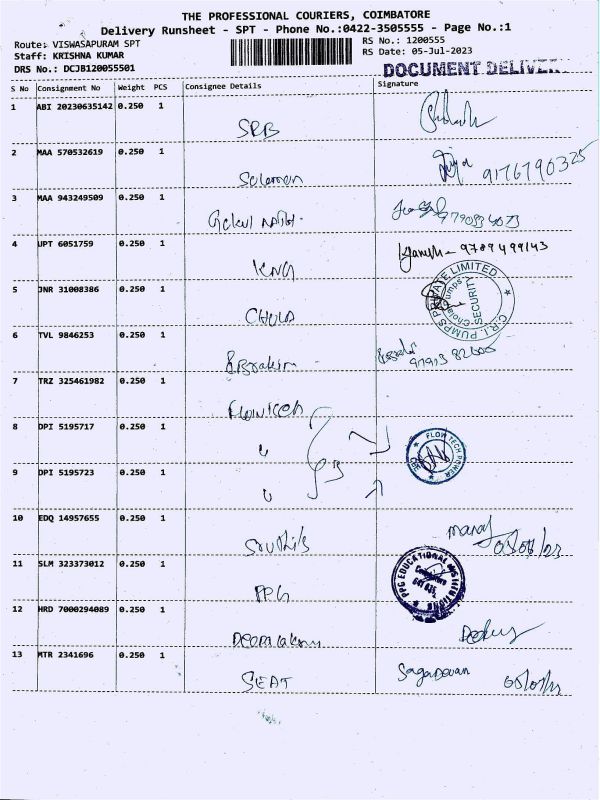 THE PROFESSIONAL COURIERS, COIMBATORE
Delivery Runsheet - SPT - Phone No.:0422-3505555 - Page No.:1
Route: VISWASAPURAM SPT RS No.: 1200555
Staff: KRISHNA KUMAR RS Date: 05-Jul-2023
DRS No.: DCJB120055501 DOCUMENT DELIVER
S No Consignment No Weight PCS Consignee Details Signature
1 ABI 20230635142 0.250 1
SRB
2 MAA 570532619 0.250 1
Solomon 9176790325
3 MAA 943249509 0.250 1
Gokul
4 UPT 6051759 0.250 1
KNG 9789499143
5 JNR 31008386 0.250 1
CHOLA
C.R.I. PUMPS PRIVATE LIMITED
SECURITY
6 TVL 9846253 0.250 1
7 TRZ 325461982 0.250 1
8 DPI 5195717 0.250 1
"
FLOW TECH POWER
9 DPI 5195723 0.250 1
"
10 EDQ 14957655 0.250 1
Sruthi's
11 SLM 323373012 0.250 1
PPG
PPG EDUCATIONAL INSTITUTIONS
12 HRD 7000294089 0.250 1
13 MTR 2341696 0.250 1
SEAT